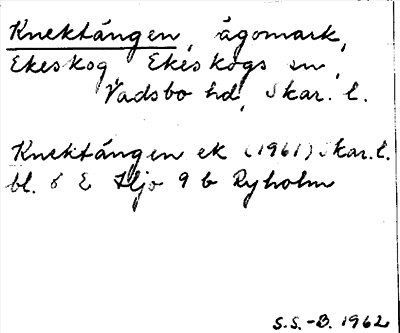 Knektängen, ägomark,
Ekeskog Ekeskogs sn,
Vadsbo hd, Skar. l.
Knektängen ek (1961) Skar. l.
bl. 8 E Hjo 9 b Ryholm
S.S.-B. 1962